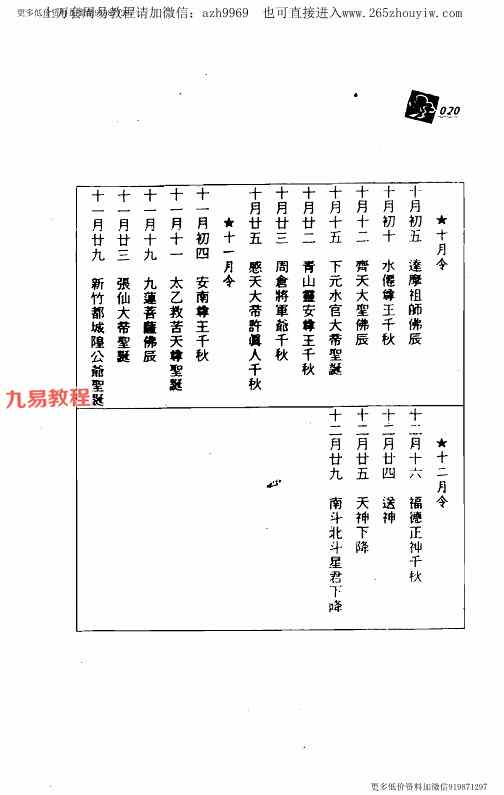 十万套周易教程请加微信：azh9969 也可直接进入www.265zhouyiw.com
020
★十月令
十月初五 達摩祖師佛辰
十月初十 水僊尊王千秋
十月十二 齊天大聖佛辰
十月十五 下元水官大帝聖誕
十月廿二 青山靈安尊王千秋
十月廿三 周倉將軍爺千秋
十月廿五 感天大帝許眞人千秋
★十一月令
十一月初四 安南尊王千秋
十一月十一 太乙救苦天尊聖誕
十一月十九 九蓮菩薩佛辰
十一月廿三 張仙大帝聖誕
十一月廿九 新竹都城隍公爺聖誕
★十二月令
十二月十六 福德正神千秋
十二月廿四 送神
十二月廿五 天神下降
十二月廿九 南斗北斗星君下降
九易教程
更多低价资料加微信919871297